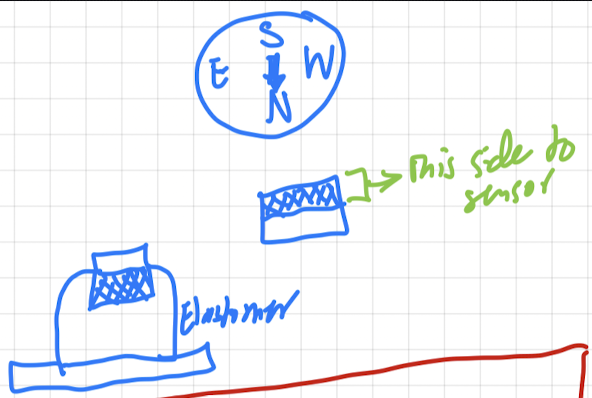 S
E W
N
This side to
sensor
Elastomer